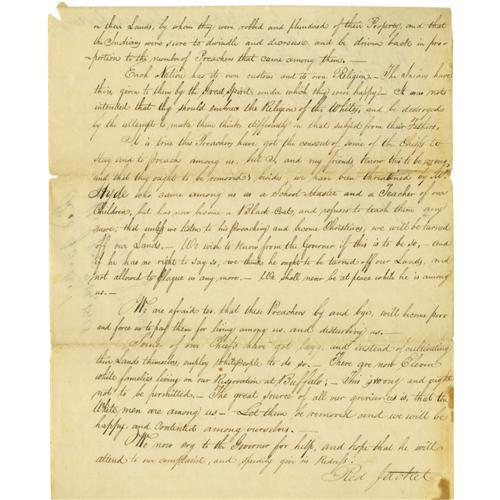 on their Lands, by whom they were robbed and plundered of their Property, and that
the Indians were sure to dwindle and decrease, and be driven back in pro-
portion to the number of Preachers that came among them. —
Each Nation has its own customs and its own Religion. — The Indians have
theirs given to them by the Great Spirit under which they were happy. — It was not
intended that they should embrace the Religion of the Whites, and be destroyed
by the attempt to make them think differently on that subject from their Fathers.
It is true this Preachers have got the consent of some of the Chiefs to
stay and to preach among us, but I and my friends know this to be wrong,
and that they ought to be removed; besides, we have been threatened by Mr.
Hyde who came among us as a School-Master and a Teacher of our
Children, but has now become a Black-Coat, and refuses to teach them any
more; that unless we listen to his Preaching and become Christians, we will be turned
off our Lands. — We wish to know from the Governor if this is to be so, — and
if he has no right to say so, we think he ought to be turned off our Lands, and
not allowed to Plague us any more. — We shall never be at peace while he is among
us. —
We are afraid too, that these Preachers by and bye, will become poor
and force us to pay them for living among us, and disturbing us. —
Some of our Chiefs have got lazy, and instead of cultivating
their Lands themselves, employ White People to do so. — There are now Eleven
white families living on our Reservation at Buffalo; — This is wrong and ought
not to be permitted. — The great source of all our grievances is, that the
White men are among us — Let them be removed and we will be
happy, and contented among ourselves. —
We now cry to the Governor for help, and hope that he will
attend to our complaint, and speedily give us Redress.
Red Jacket